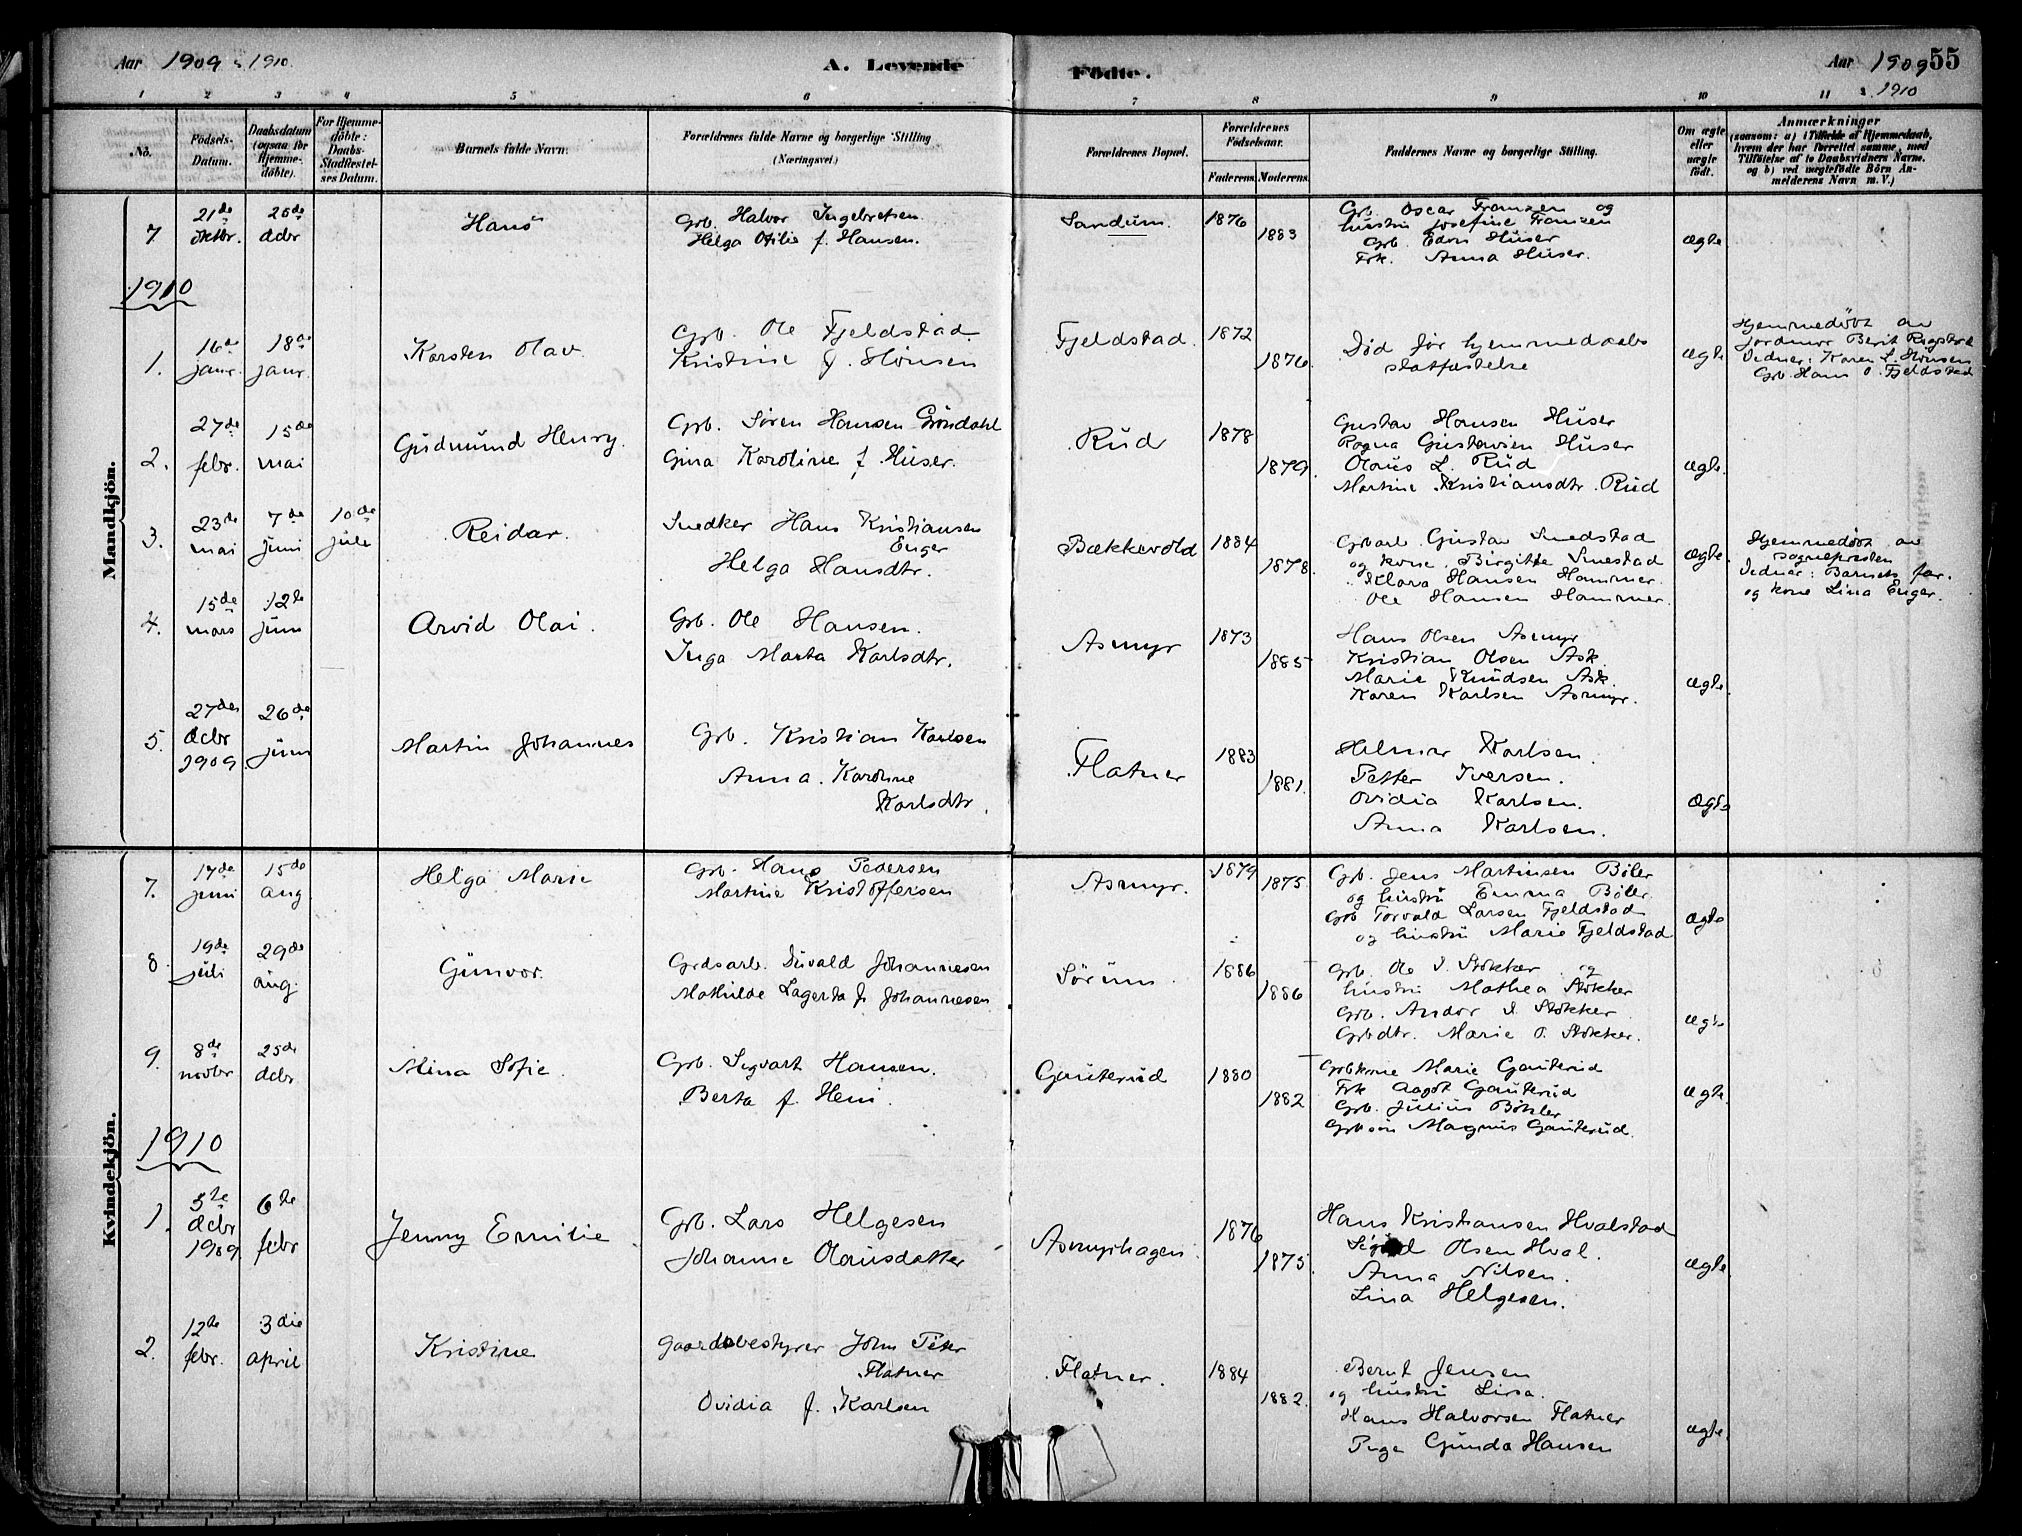 Aar 1909 & 1910.
A. Levende Födte.
Aar 1909 & 1910
55
1 2 3 4 5 6 7 8 9 10 11
No.
Födsels-Datum.
Daabsdatum (ogsaa for Hjemme-döbte).
For Hjemme-döbte: Daabs-Stadfæstel-ses Datum.
Barnets fulde Navn.
Forældrenes fulde Navne og borgerlige Stilling (Næringsvei.)
Forældrenes Bopæl.
Forældrenes Födselsaar.
Faderens. Moderens.
Faddernes Navne og borgerlige Stilling.
Om ægte eller uægte födt.
Anmærkninger
(saasom: a) i Tilfælde af Hjemmedaab, hvem der har forrettet samme, med Tilföielse af to Daabsvidners Navne, og b) ved uægtefödte Börn Anmelderens Navn m. V.)
Mandkjön.
7. 21de oktbr. 26de dcbr Hans
Grb. Halvor Ingebretsen
Helga Otilie f. Hansen.
Sandum. 1876 1883
Grb. Oscar Franzen og
hustru Josefine Franzen
Grb. Edvn Huser
Frk. Anna Huser.
ægte
1910
1. 16de janr. 18de janr. Karsten Olav
Grb. Ole Fjeldstad
Kristine f. Hönsen
Fjeldstad. 1872 1876
Död för hjemmedaabs
statfæstelse
ægte
Hjemmedöbt av
jordmor Berit Rogstad
Vidner: Karen L. Hönsen
Grb. Hans O. Fjeldstad
2. 27de febr. 15de mai Gudmund Henry.
Grb. Sören Hansen Gröndahl
Gina Karoline f. Huser.
Rud 1878 1879
Gustav Hansen Huser
Ragna Gustavsen Huser
Olaus L. Rud
Martine Kristiansdtr. Rud
ægte
3. 23de mai 7de juni 10de juli Reidar.
Snedker Hans Kristiansen
Enger
Helga Hansdtr.
Bækkevold 1884 1878
Grbarb. Gustav Smestad
og kone Birgitte Smestad
Klara Hansen Hammer.
Ole Hansen Hammer.
ægte.
Hjemmedöbt av
sognepresten
Vidner: Barnets far.
og kone Lina Enger.
4. 15de mars 12te juni Arvid Olai.
Grb. Ole Hansen.
Inga Marta Karlsdtr.
Asmyr 1873 1885
Hans Olsen Asmyr
Kristian Olsen Ask.
Marie Knudsen Ask.
Karen Karlsen Asmyr.
ægte
5. 27de dcbr 1909. 26de juni Martin Johannes
Grb. Kristian Karlsen
Anna Karoline
Karlsdtr.
Flatner 1883 1881.
Helmer Karlsen.
Petter Iversen.
Ovidia Karlsen.
Anna Karlsen.
ægte
Kvindekjön.
7. 17de juni 15de aug Helga Marie
Grb. Hans Pedersen
Martine Kristoffersen
Asmyr. 1879 1875
Grb. Jens Martinsen Böler
og hustru Emma Böler
Grb Torvald Larsen Fjeldstad
og hustru Marie Fjeldstad
ægte
8. 19de juli 29de aug. Gunvor.
Grdsarb. Sivald Johannesen
Mathilde Lagerta f. Johannesen
Sörum. 1886 1886
Grb. Ole I. Stokker og
hustru Mathea Stokker
Grb. Andor I. Stokker
Grbdtr. Marie O. Stokker.
ægte
9. 8de novbr 25de dcbr Alina Sofie.
Grb. Sigvart Hansen.
Berta f. Heni.
Gauterud 1880 1882
Grbkone Marie Gauterud
Frk Aagot Gauterud
Grb. Julius Böhler
Grbsön Magnus Gauterud.
ægte.
1910
1. 5te dcbr 1909 6te febr Jenny Emilie
Grb. Lars Helgesen
Johanne Olausdatter
Asmyrhagen 1876 1875.
Hans Kristiansen Hvalstad
Olsen Hval.
Anna Nilsen.
Lina Helgesen.
ægte
2. 12te febr. 3die april Kristine
Gaardsbestyrer John Peter
Flatner
Ovidia f. Karlsen
Flatner. 1884 1882.
Bernt Jensen
og hustru Lina.
Hans Halvorsen Flatner
Inga Gunda Hansen
ægte.